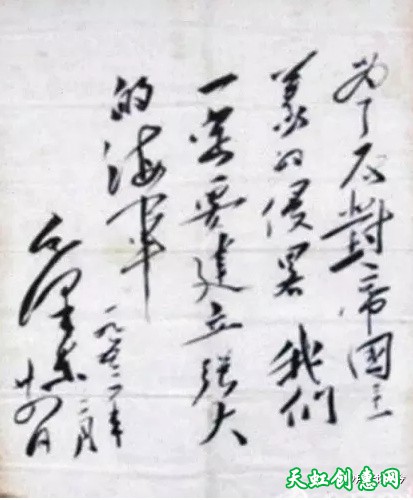 为了反對帝國主
義的侵畧我們
一定要建立强大
的海軍
毛澤东
一九五三年
二月
廿四日
天虹创意网